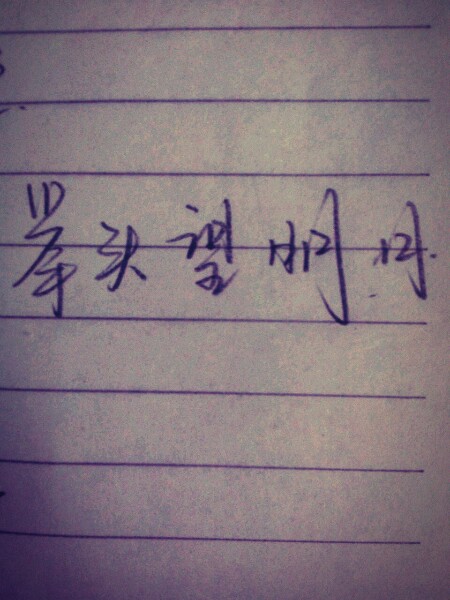 举头望明月.